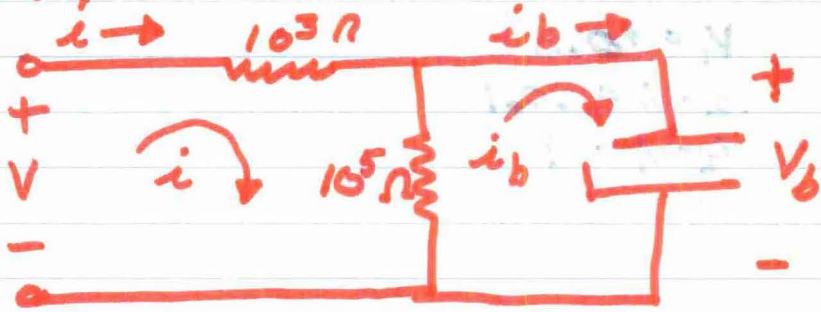 i → 10³ Ω i_b →
+ +
V i 10⁵ Ω i_b V_b
- -